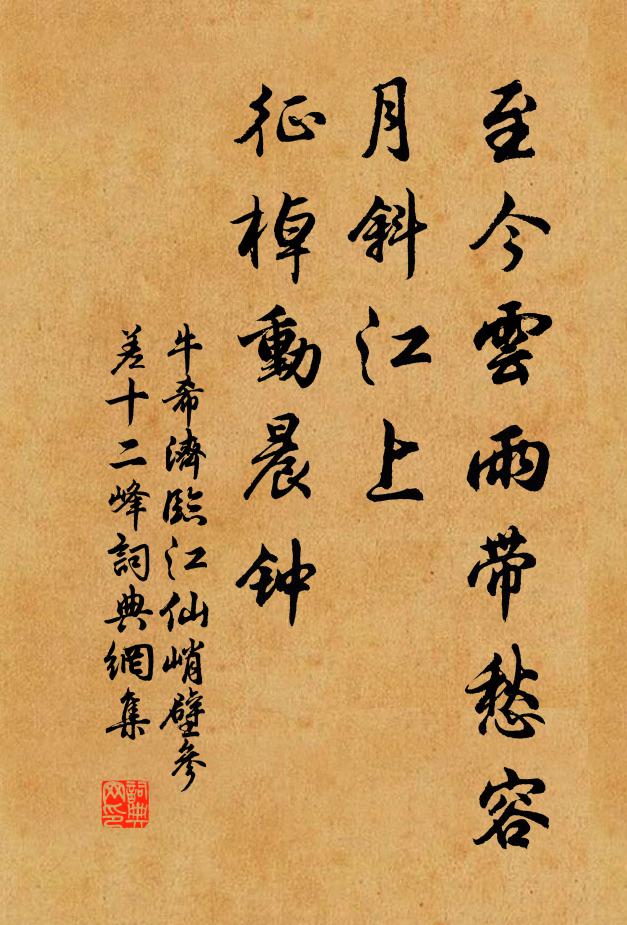 至今雲雨带愁容
月斜江上
征棹動晨钟
牛希濟臨江仙峭壁參
差十二峰詞典網集
詞典
网印